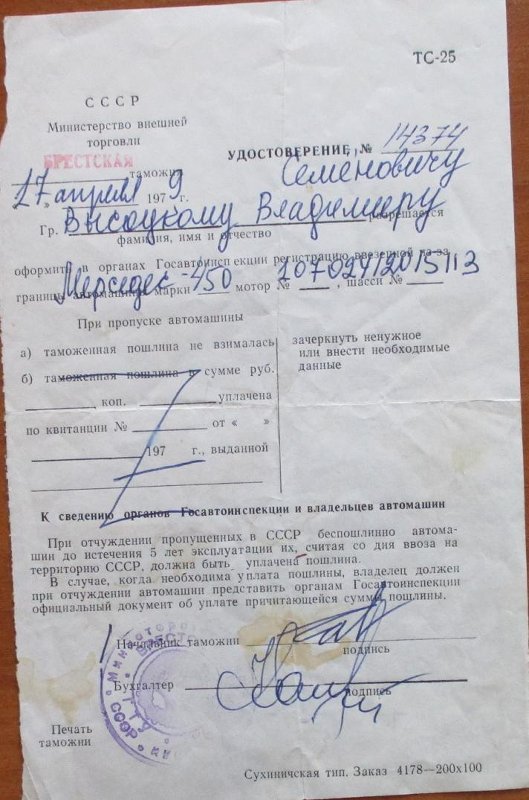 ТС-25
СССР
Министерство внешней
торговли
БРЕСТСКАЯ таможня
УДОСТОВЕРЕНИЕ № 14374
«17 апреля 1979 г. Семеновичу
Гр. Высоцкому Владимиру разрешается
фамилия, имя и отчество
оформить в органах Госавтоинспекции регистрацию ввезенной из-за
границы автомашины марки Мерседес-450 мотор № , шасси № 10702412015113
При пропуске автомашины
а) таможенная пошлина не взималась
б) таможенная пошлина в сумме руб.
, коп. уплачена
по квитанции № от « »
197 г., выданной
зачеркнуть ненужное
или внести необходимые
данные
К сведению органов Госавтоинспекции и владельцев автомашин
При отчуждении пропущенных в СССР беспошлинно автома-
шин до истечения 5 лет эксплуатации их, считая со дня ввоза на
территорию СССР, должна быть уплачена пошлина.
В случае, когда необходима уплата пошлины, владелец должен
при отчуждении автомашин представить органам Госавтоинспекции
официальный документ об уплате причитающейся суммы пошлины.
Начальник таможни
подпись
Бухгалтер
подпись
Печать
таможни
СССР
Сухиничская тип. Заказ 4178—200х100